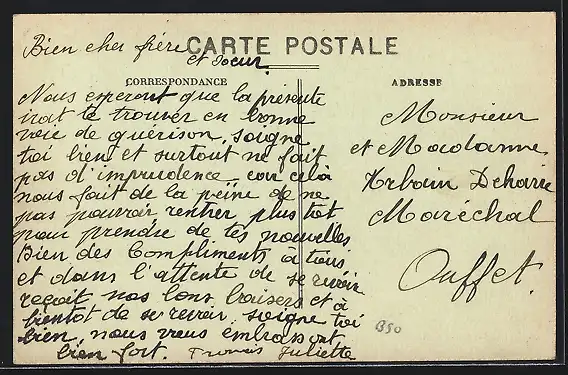 Bien cher frère
et Soeur
CARTE POSTALE
CORRESPONDANCE
Nous esperont que la présente
irat te trouver en bonne
voie de guérison, soigne
toi bien et surtout ne fait
pas d'imprudence car celà
nous fait de la peine de ne
pas pouvoir rentrer plus tot
pour prendre de tes nouvelles
Bien des Compliments à tous
et dans l'attente de se revoir
reçoit nos bons baisers et à
bientot de se revoir, soigne toi
bien, nous vous embrassont
bien fort. Juliette
ADRESSE
Monsieur
et Madame
Urbain
Maréchal
Ouffet.
B50